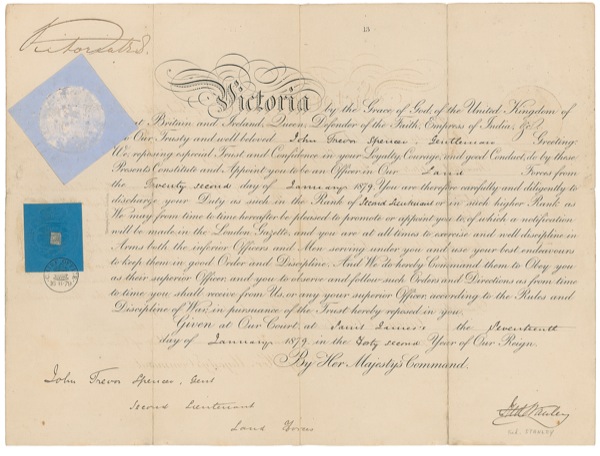 Victoria R
13
Victoria by the Grace of God, of the United Kingdom of
Britain and Ireland, Queen, Defender of the Faith, Empress of India, &c.
To Our Trusty and well beloved John Trevor Spencer, Gentleman Greeting:
We, reposing especial Trust and Confidence in your Loyalty, Courage, and good Conduct, do by these
Presents Constitute and Appoint you to be an Officer in Our Land Forces from
the Twenty second day of January 1879. You are therefore carefully and diligently to
discharge your Duty as such in the Rank of Second Lieutenant or in such higher Rank as
We may from time to time hereafter be pleased to promote or appoint you to, of which a notification
will be made in the London Gazette, and you are at all times to exercise and well discipline in
Arms both the inferior Officers and Men serving under you and use your best endeavours
to keep them in good Order and Discipline. And We do hereby Command them to Obey you
as their superior Officer, and you to observe and follow such Orders and Directions as from time
to time you shall receive from Us, or any your superior Officer, according to the Rules and
Discipline of War, in pursuance of the Trust hereby reposed in you.
Given at Our Court, at Saint James's the Seventeenth
day of January 1879, in the Forty second Year of Our Reign.
By Her Majesty's Command.
John Trevor Spencer, Gent
Second Lieutenant
Land Forces
Stanley
STANLEY